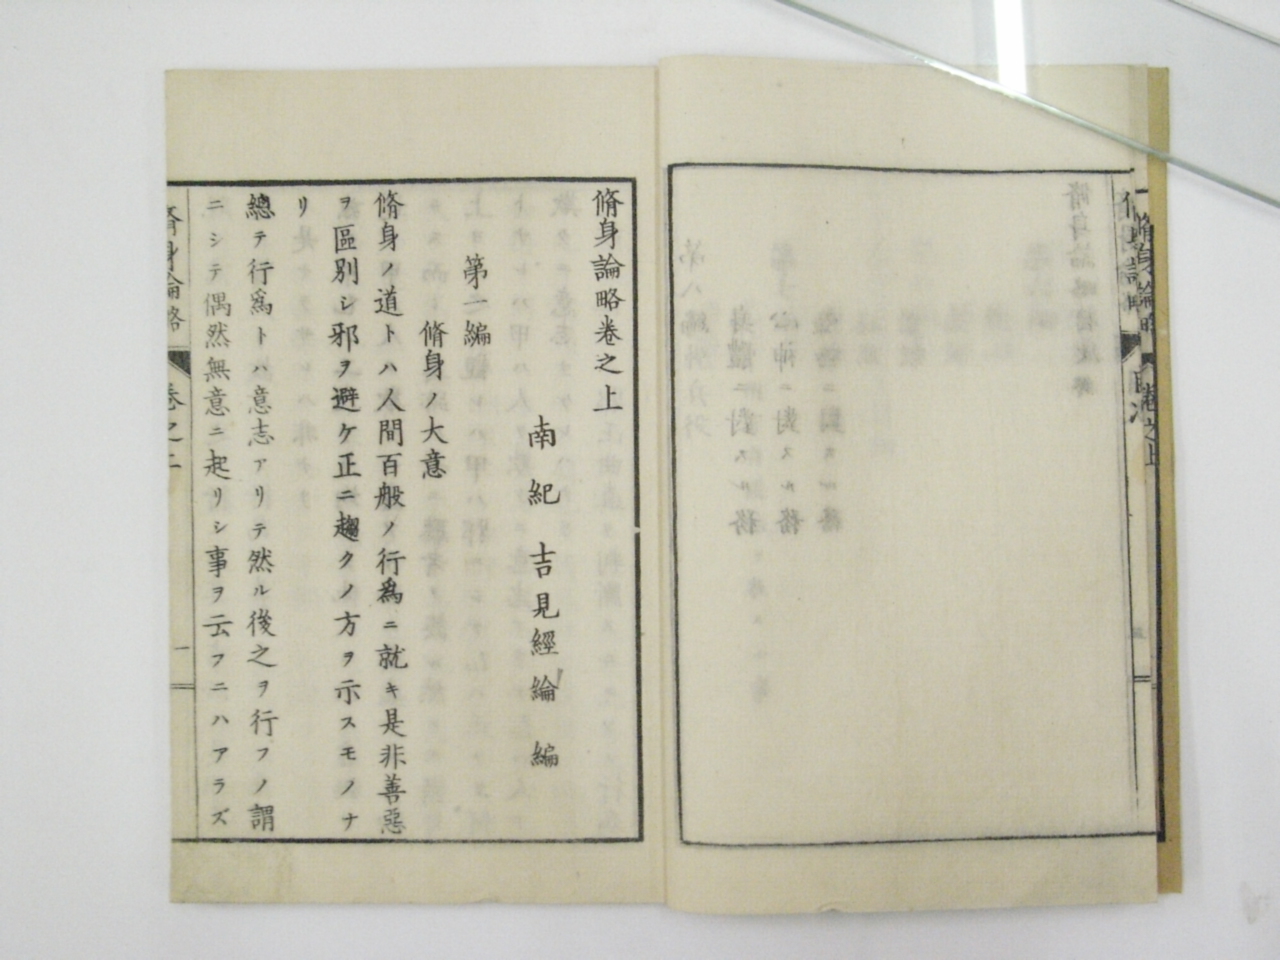 脩身論略卷之上
南紀 吉見經綸 編
第一編
脩身ノ大意
脩身ノ道トハ人間百般ノ行爲ニ就キ是非善惡
ヲ區別シ邪ヲ避ケ正ニ趨クノ方ヲ示スモノナ
リ
總テ行爲トハ意志アリテ然ル後之ヲ行フノ謂
ニシテ偶然無意ニ起リシ事ヲ云フニハアラズ
脩身論略 卷之上 一